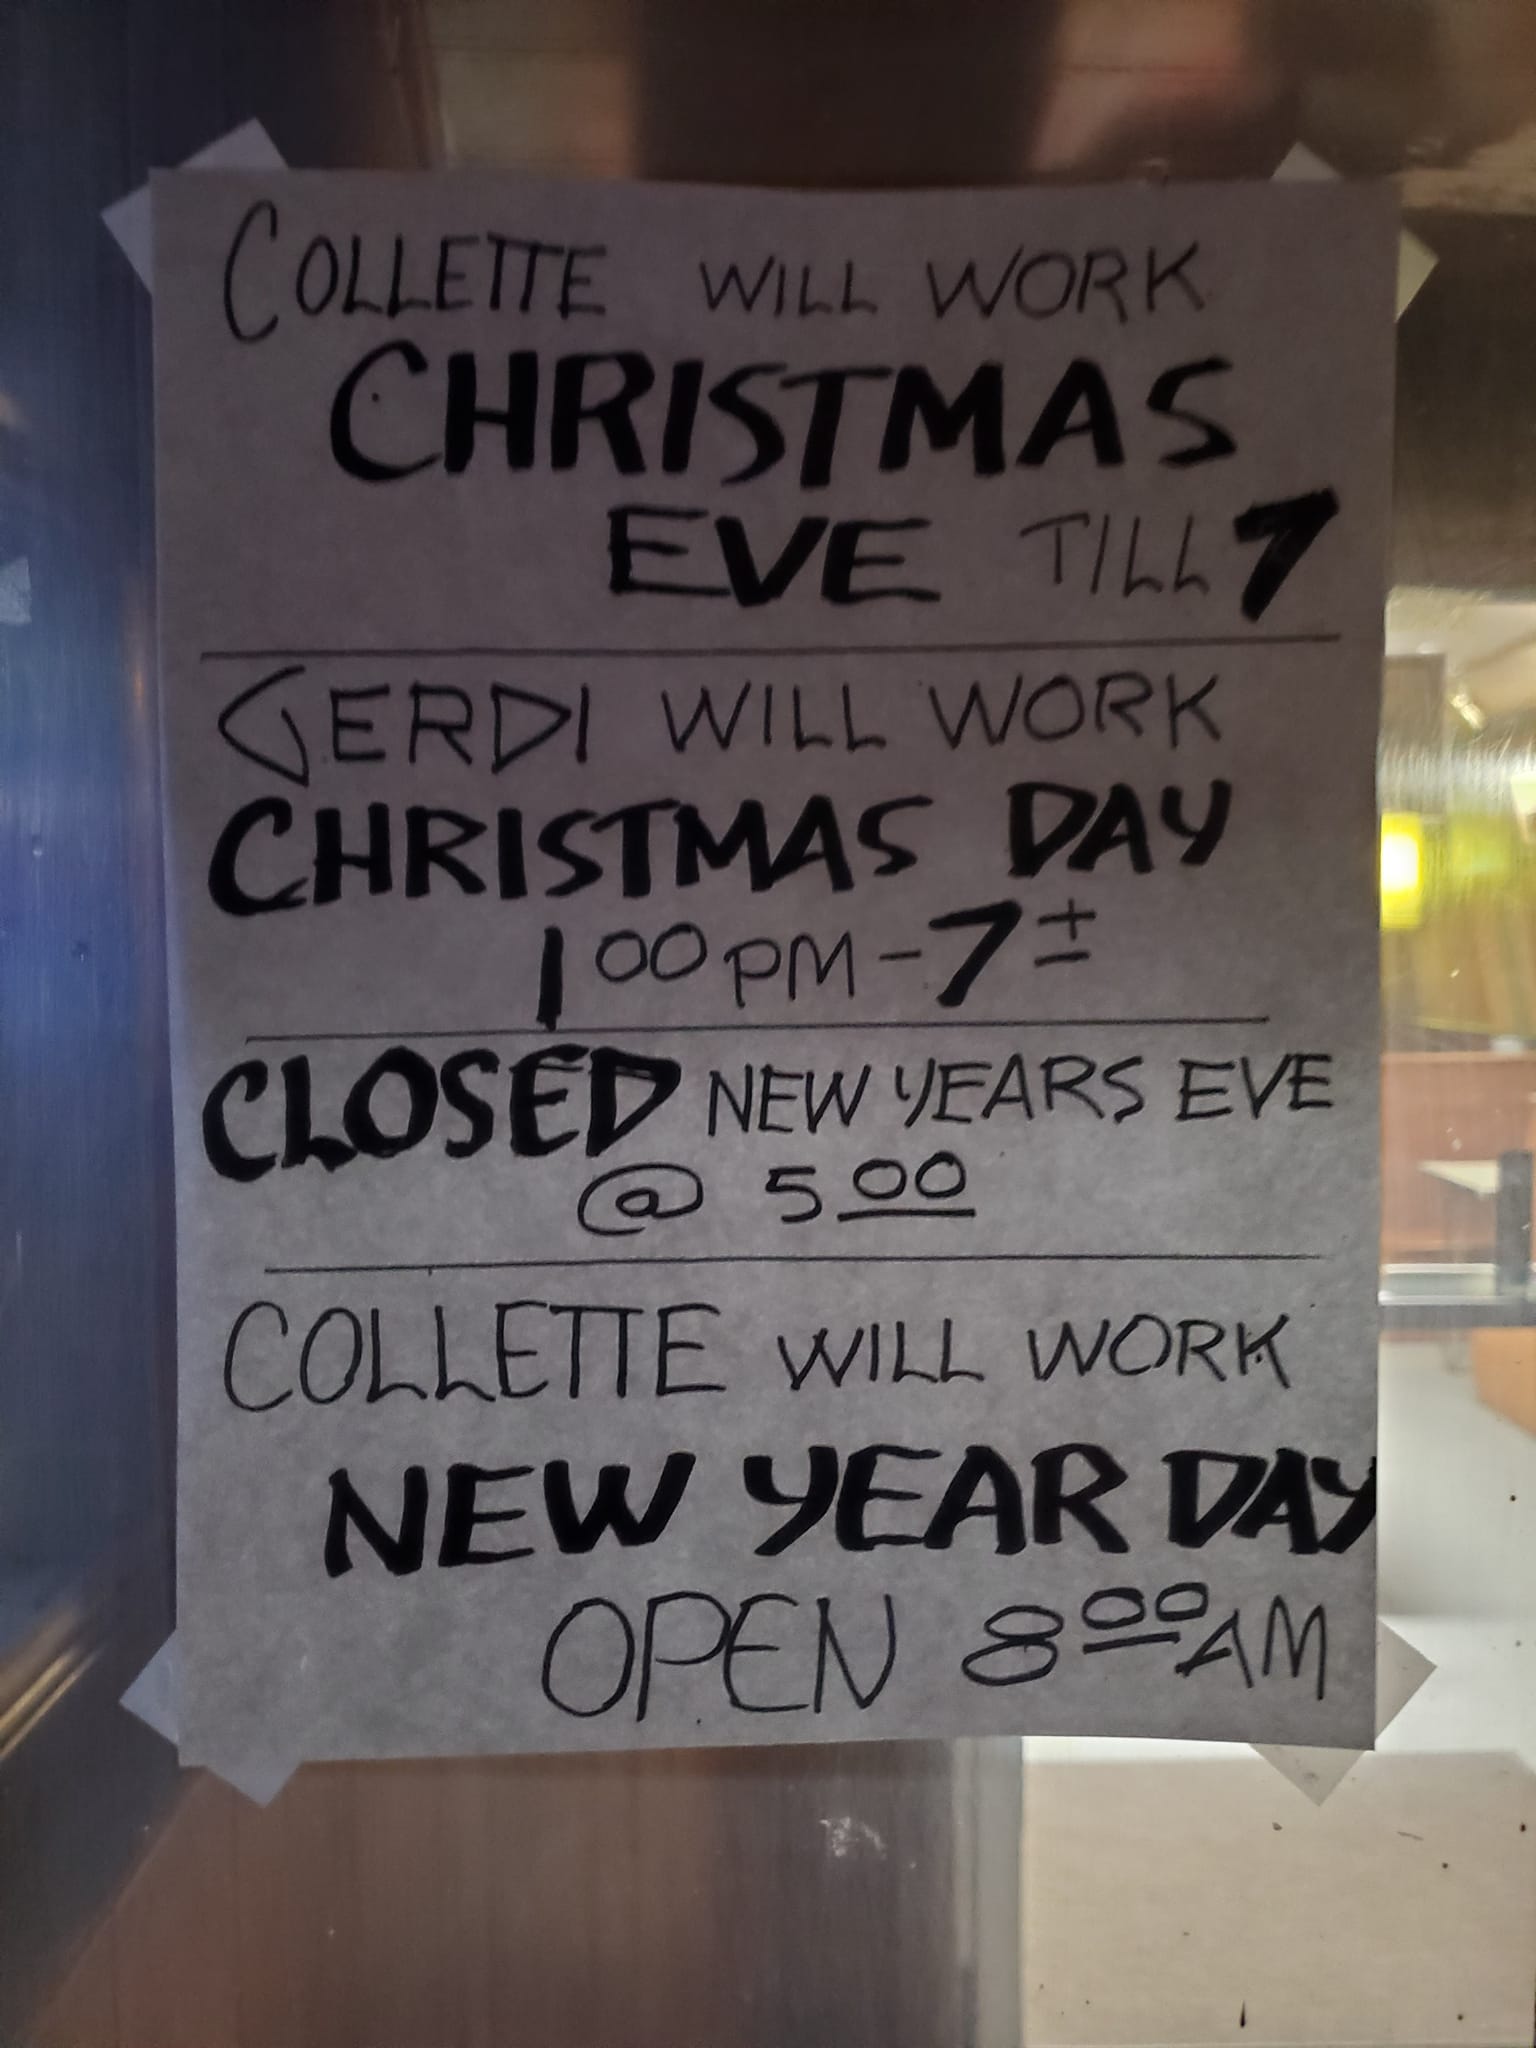 COLLETTE WILL WORK
CHRISTMAS
EVE TILL 7
GERDI WILL WORK
CHRISTMAS DAY
1 00 PM - 7 ±
CLOSED NEW YEARS EVE
@ 5 00
COLLETTE WILL WORK
NEW YEAR DAY
OPEN 8 00 AM